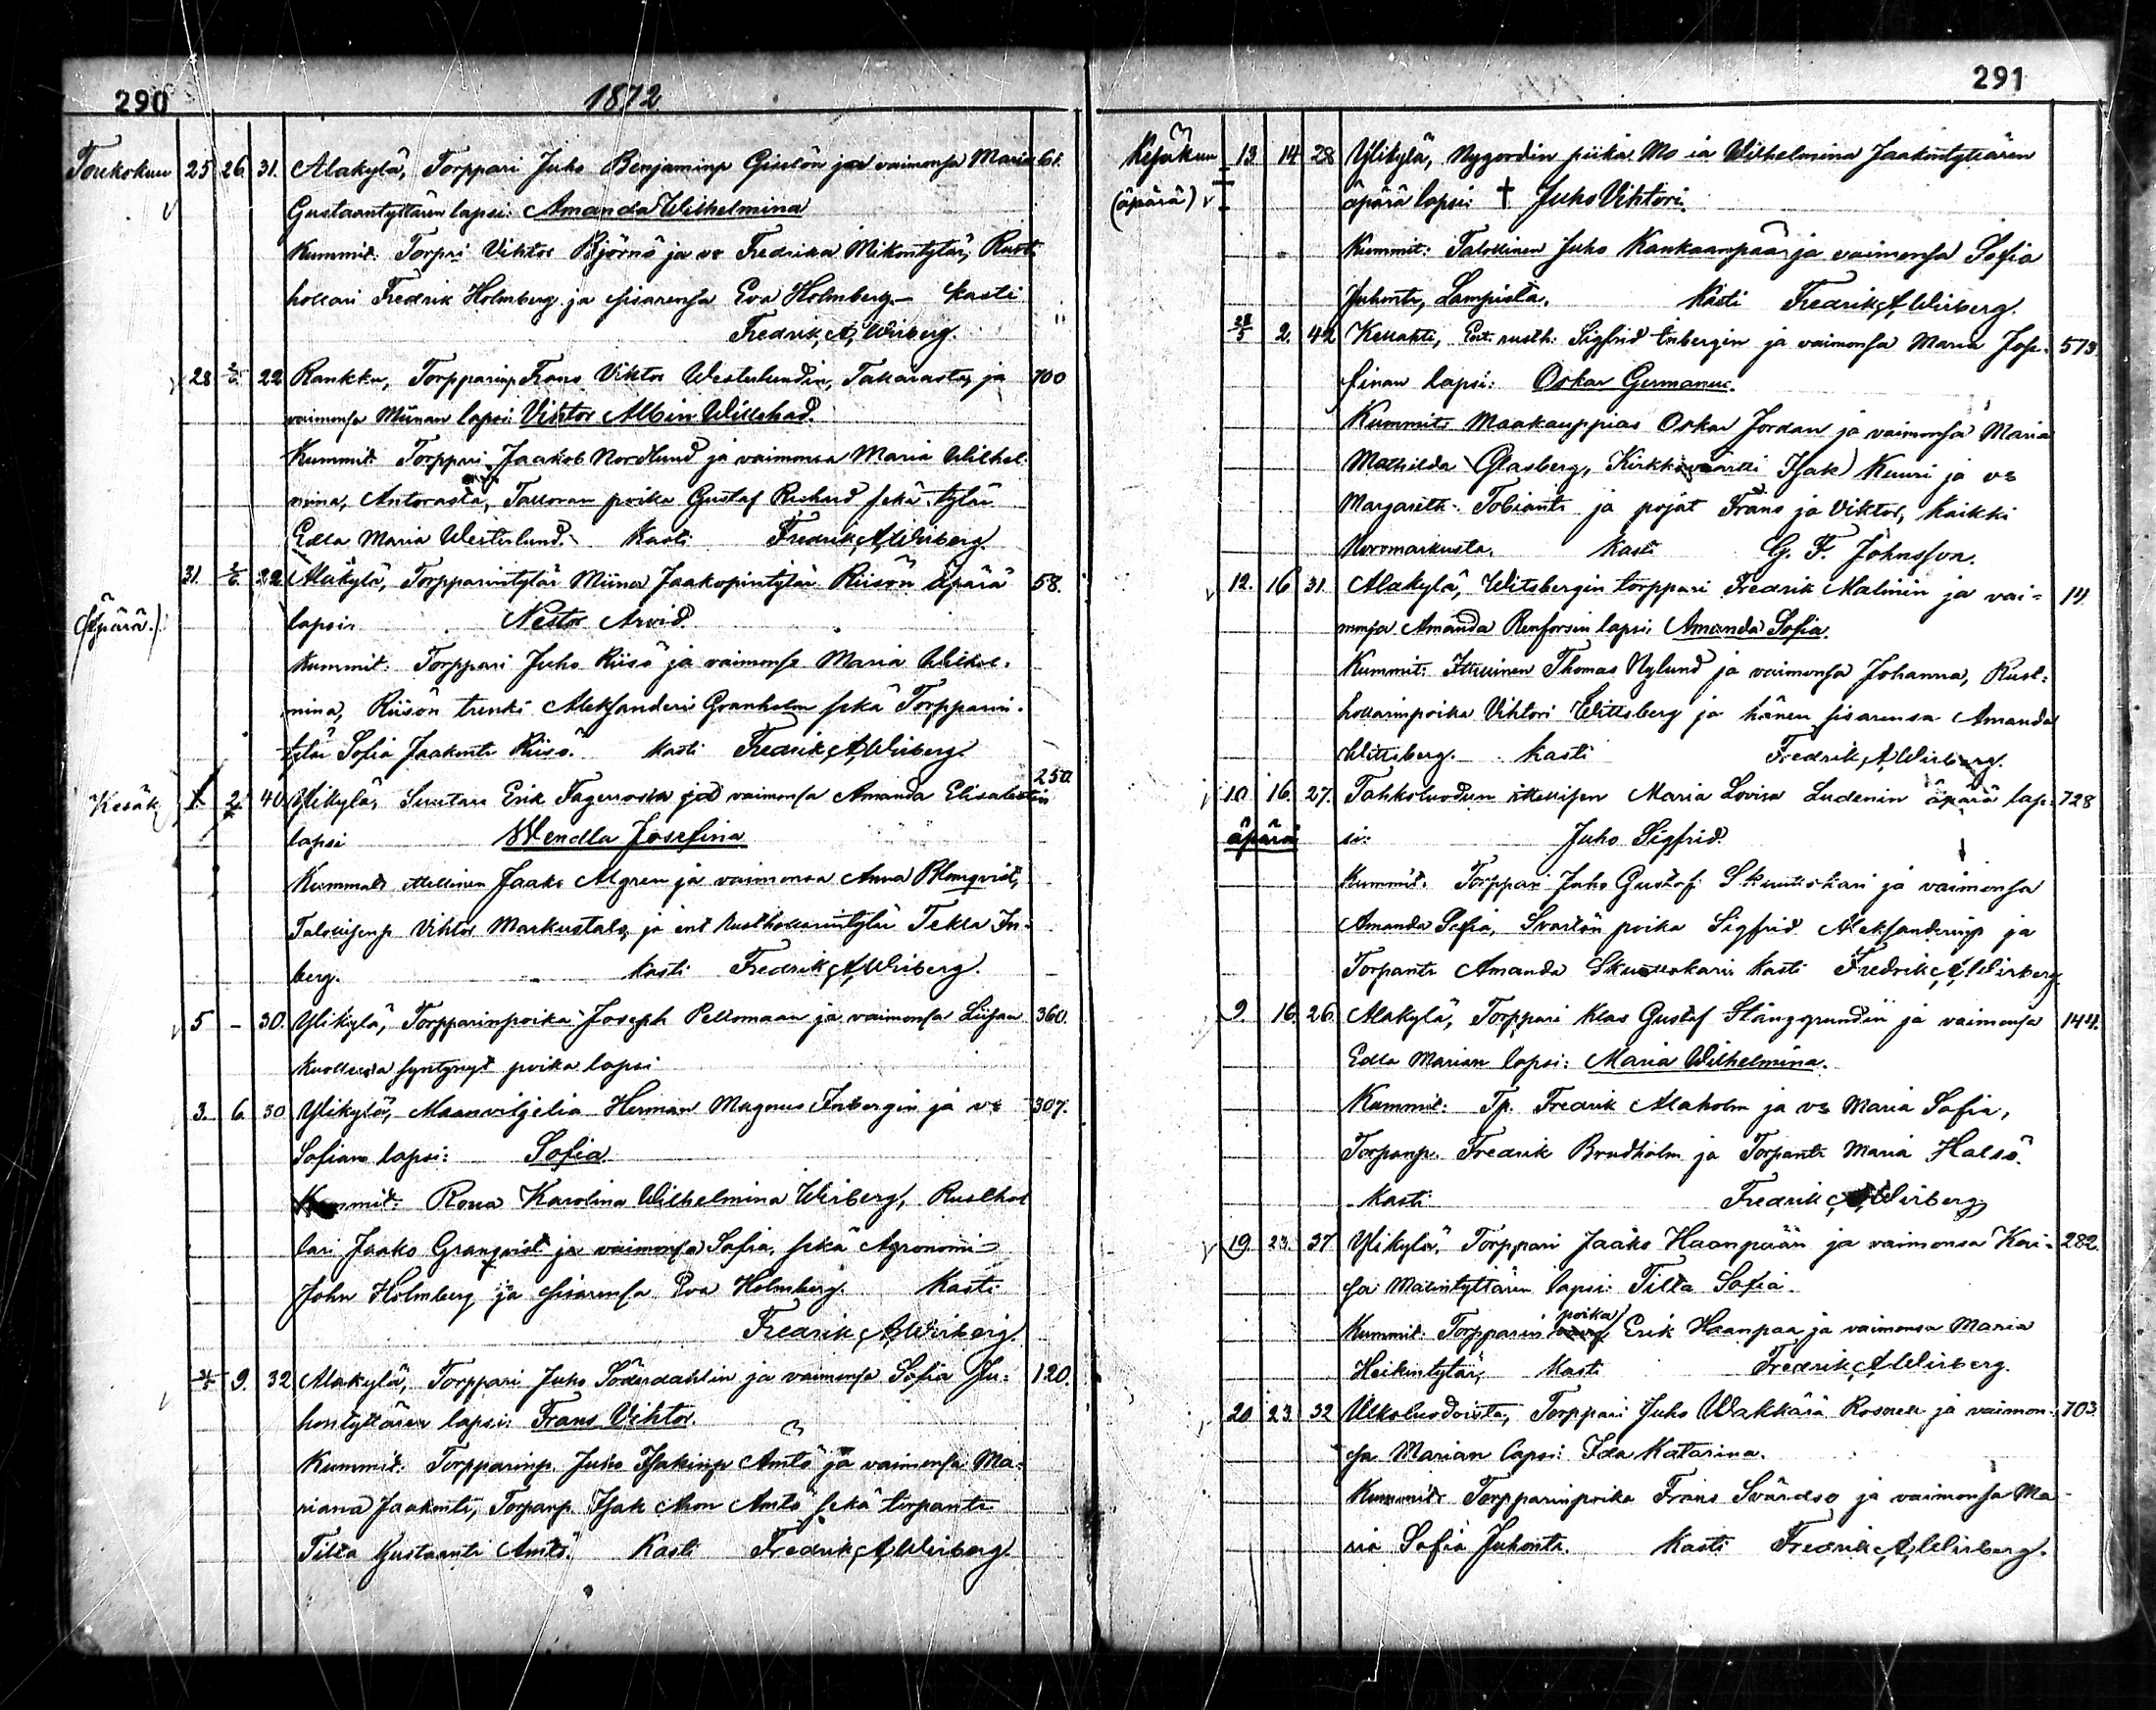 290
1872
Toukokuu 25 26. 31. Alakylä, Torppari Juho Benjaminp Giselön ja vaimonsa Maria 61.
Gustaantyttären lapsi: Amanda Wilhelmina
Kummit: Torpri Vihtor Björnö ja vo Fredrika Mikontytär, Rust-
hollari Fredrik Holmberg ja sisarensa Eva Holmberg.- Kasti
Fredrik, A, Wirberg.
28 2/6. 22 Rankku, Torpparinp Frans Viktor Westerlundin, Takarasta, ja 700
vaimonsa Miinan lapsi: Vihtor Albin Willehad.
Kummit: Torppari Jaakob Nordlund ja vaimonsa Maria Wilhel-
mina, Antorasta, Talloran poika Gustaf Richard sekä tytär
Edla Maria Westerlund. Kasti Fredrik, A, Wirberg.
31. 2/6. 22 Alakylä, Torpparintytär Miina Jaakopintytär Riisön äpärä 58.
(Äpärä.)
lapsi: Nestor Arvid
Kummit: Torppari Juho Riisö ja vaimonsa Maria Wilhel-
mina, Riisön trenki Aleksanderi Granholm sekä Torpparin-
tytär Sofia Jaakonts Riisö. Kasti Fredrik, A, Wirberg.
Kesäk. 1. 2. 40. Ylikylä, Suutari Erik Fagerroosin ja vaimonsa Amanda Elisabetin 250.
lapsi Wendla Josefina
Kummit: Itellinen Jaako Algren ja vaimonsa Anna Blomqvist,
Talollisenp Vihtor Markustalo, ja ent Rusthollarintytär Tekla In-
berg. Kasti Fredrik, A, Wirberg.
5 - 30. Ylikylä, Torpparinpoika Joseph Pellomaan ja vaimonsa Liisan 360.
Kuolleena syntynyt poika lapsi
3. 6. 30 Ylikylä, Maanviljeliä Herman Magnus Inbergin ja vo 307.
Sofian lapsi: Sofia
Kummit: Roua Karolina Wilhelmina Wirberg, Rusthol
lari Jaako Granqvist ja vaimonsa Sofia, sekä Agronomi
John Holmberg ja sisarensa Eva Holmberg. Kasti
Fredrik, A, Wirberg.
9. 32 Alakylä, Torppari Juho Söderdahlin ja vaimonsa Sofia Ju- 120.
hontyttären lapsi: Frans Vihtor.
Kummit: Torpparinp. Juho Isakinp Amtö ja vaimonsa Ma-
riana Jaakonts, Torpanp. Isak Aron Amtö sekä torpants
Tilta Gustaants Amtö. Kasti Fredrik, A, Wirberg.
291
Kesäkuu 13. 14 28 Ylikylä, Nygordin piika Maria Wilhelmina Jaakontyttären
(äpärä) äpärä lapsi: † Juho Vihtori.
Kummit: Talollinen Juho Kankaanpää ja vaimonsa Sofia
Juhonts, Lampista. Kasti Fredrik, A, Wirberg.
28/5 2. 42 Kellahti, Ent. rusth: Sigfrid Inbergin ja vaimonsa Maria Jose- 573.
finan lapsi: Oskar Germanus.
Kummit: Maakauppias Oskar Jordan ja vaimonsa Maria
Mathilda Glasberg, Kirkkovaartti Isak Kuuri ja vo
Margareth. Tobiants ja pojat Frans ja Viktor, Kaikki
Norrmarkusta. Kasti G. F. Johnsson.
12. 16 31. Alakylä, Witsbergin torppari Fredrik Malinin ja vai- 14
monsa Amanda Renforsin lapsi: Amanda Sofia.
Kummit: Itellinen Thomas Nylund ja vaimonsa Johanna, Rust-
hollarinpoika Vihtori Wittsberg ja hänen sisarensa Amanda
Wittsberg. Kasti Fredrik, A, Wirberg.
10. 16. 27. Tahkoluodun itellisen Maria Lovisa Ludenin äpärä lap- 728
äpärä si: Juho Sigfrid.
Kummit: Torppari Juho Gustaf Skuuskari ja vaimonsa
Amanda Sofia, Svartön poika Sigfrid Aleksanderinp ja
Torpants Amanda Kasti Fredrik, A, Wirberg.
9. 16. 26. Alakylä, Torppari Klas Gustaf Stångsgrundin ja vaimonsa 144.
Edla Marian lapsi: Maria Wilhelmina.
Kummit: Tp. Fredrik Alaholm ja vo Maria Sofia,
Torpanp. Fredrik Brudholm ja Torpants Maria Halsö.
Kasti Fredrik, A, Wirberg
19. 23. 37 Ylikylä, Torppari Jaako Haanpään ja vaimonsa Kai- 282.
sa Matintyttären lapsi: Tilta Sofia.
poika
Kummit: Torpparin Erik Haanpaa ja vaimonsa Maria
Heikintytär, Kasti Fredrik, A, Wirberg.
20 23 32 Ulkoluodoista, Torppari Juho Wakkärä Rosnell ja vaimon- 703
sa Marian lapsi: Ida Katarina.
Kummit: Torpparinpoika Frans Svärdsö ja vaimonsa Ma-
ria Sofia Juhonts. Kasti Fredrik, A, Wirberg.